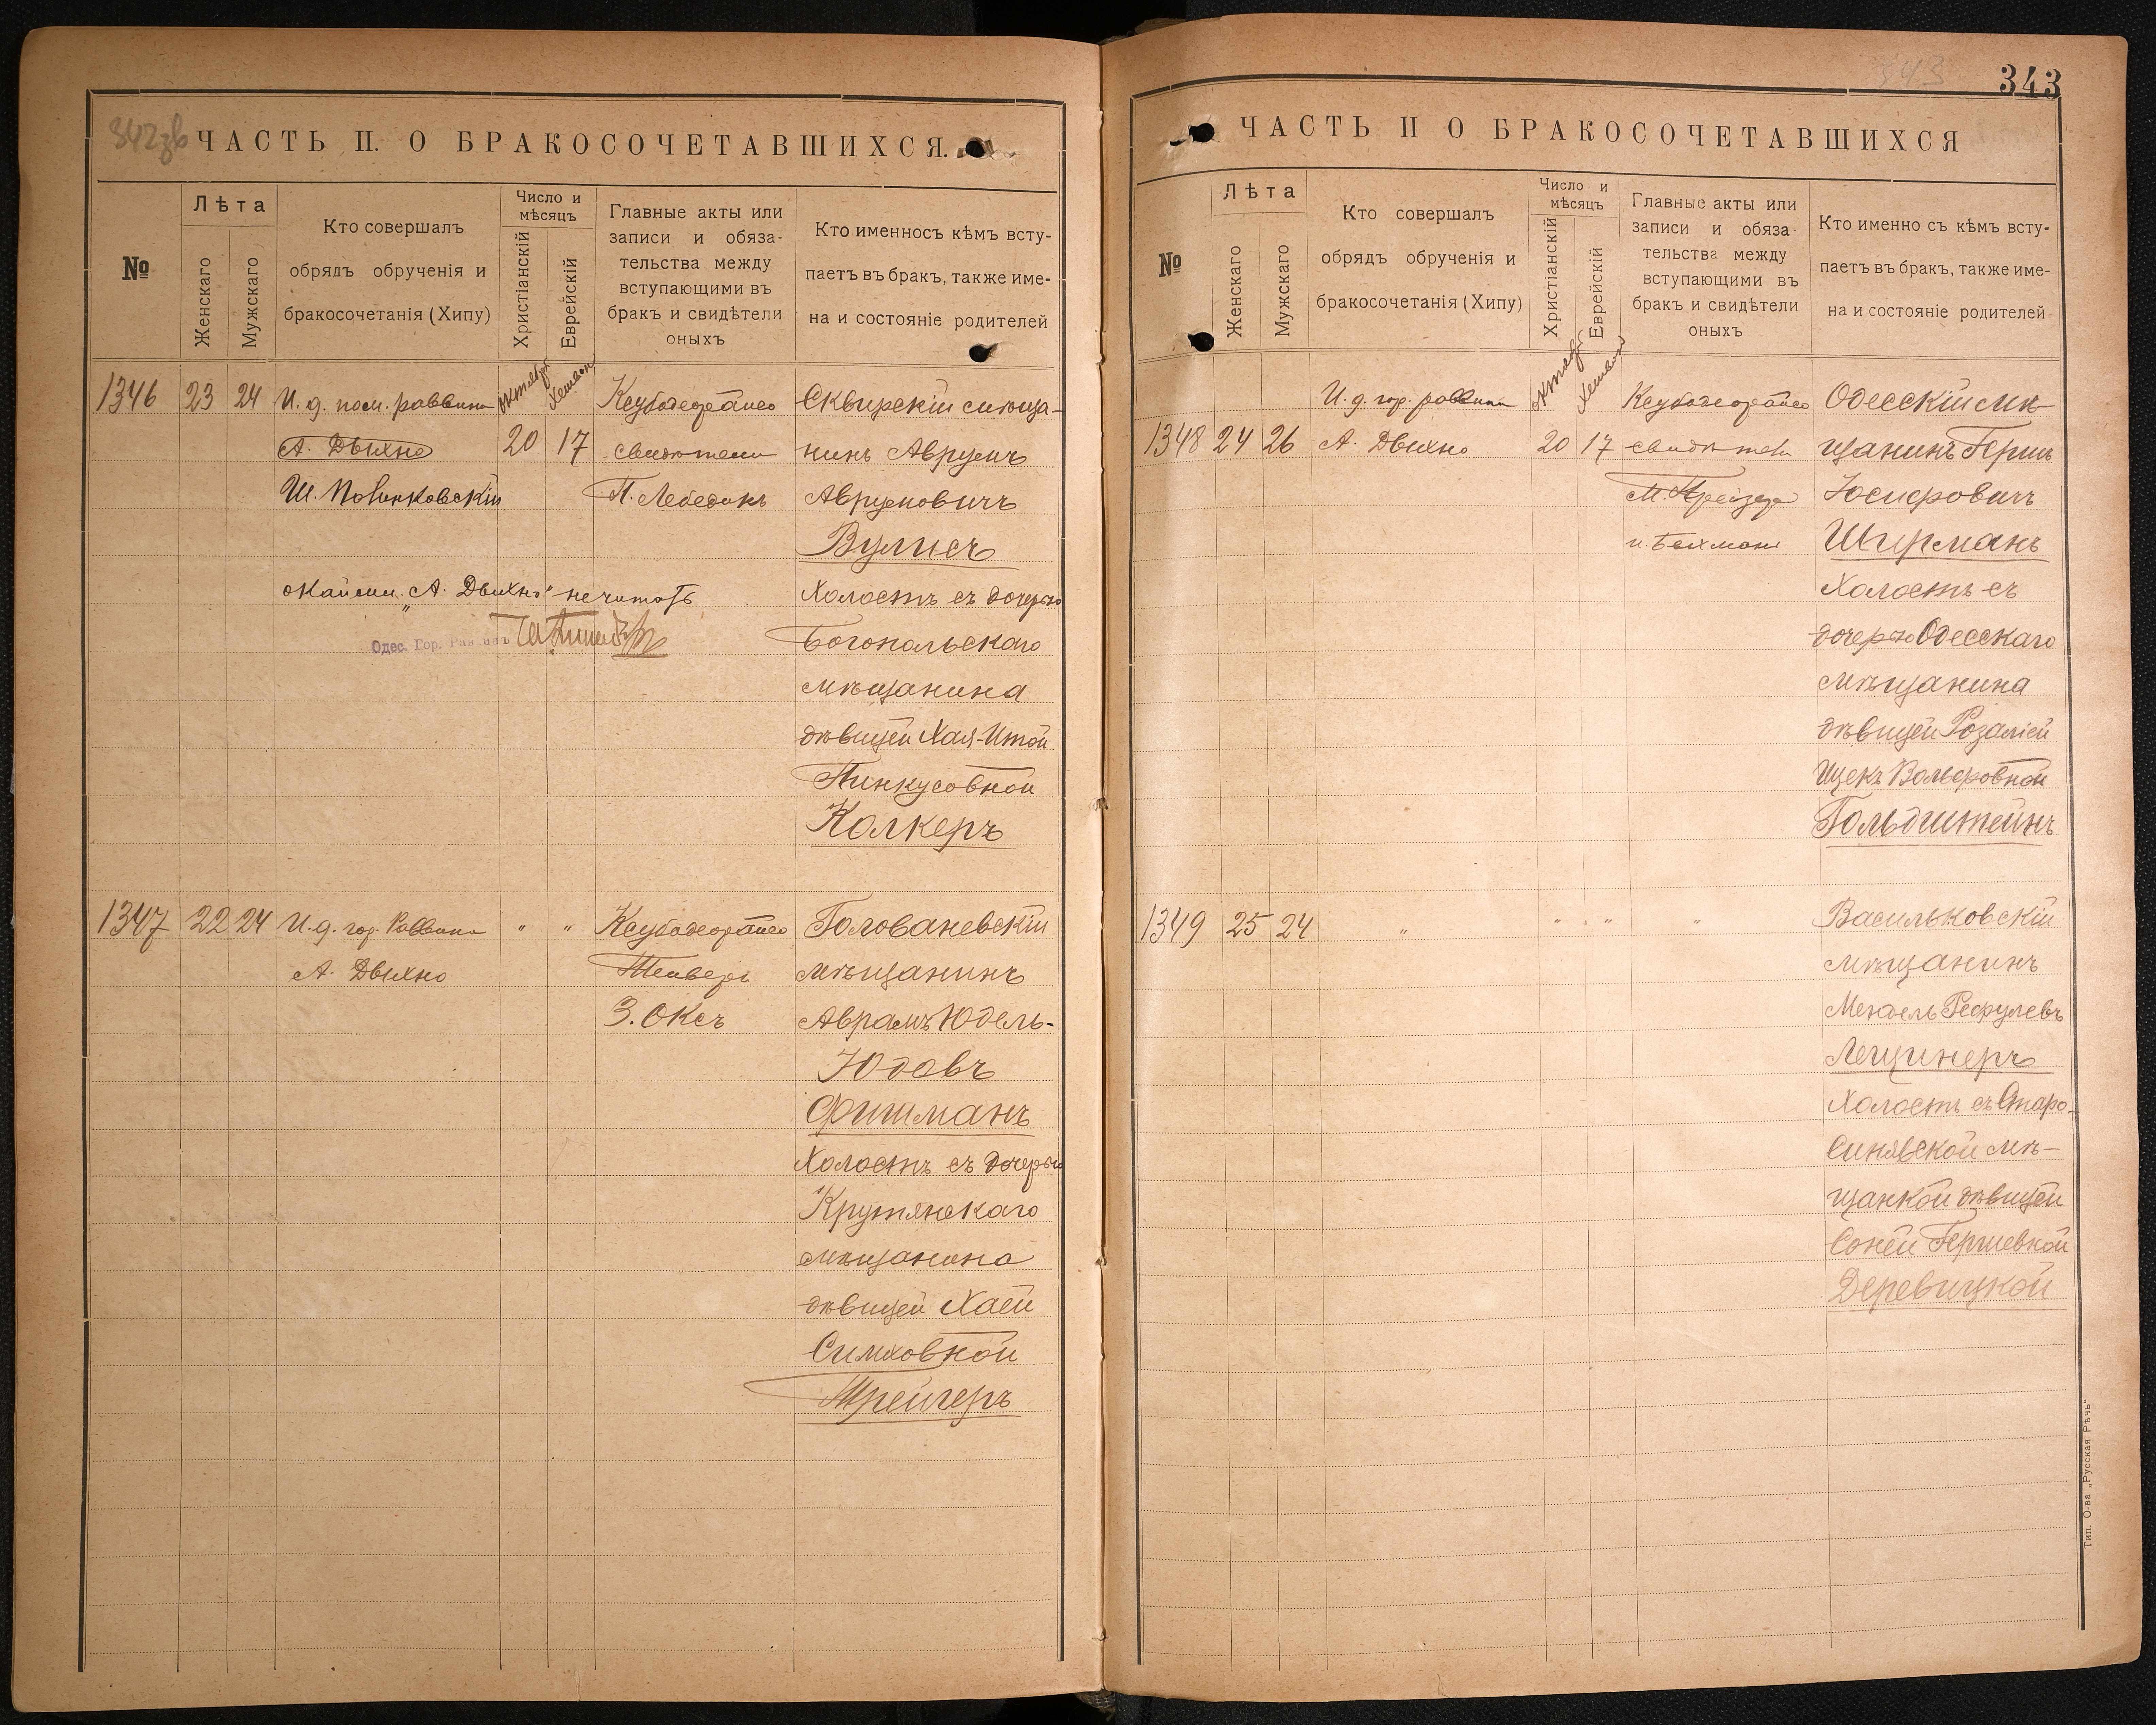 342зв
ЧАСТЬ II. О БРАКОСОЧЕТАВШИХСЯ.
№
Лѣта
Женскаго
Мужскаго
Кто совершалъ
обрядъ обрученія и
бракосочетанія (Хипу)
Число и
мѣсяцъ
Христіанскій
Еврейскій
Главные акты или
записи и обяза-
тельства между
вступающими въ
бракъ и свидѣтели
оныхъ
Кто именносъ кѣмъ всту-
паетъ въ бракъ, также име-
на и состояніе родителей
1346 23 24 И. д. пом. раввина Октябрь Хешван Сквирскій мѣща-
А. Двихно 20 17 свидѣтели нинъ Аврумъ
Ш. Новинковскій П. Лебедикъ Аврумовичъ
Вулисъ
„А. Двихно" не читать Холостъ съ дочерью
Одес. Гор. Раввинъ Богопольскаго
мѣщанина
дѣвицей Хая-Итой
Пинкусовной
Колкеръ
1347 22 24 И. д. гор. Раввина " " Головановскій
А. Двихно Теверъ мѣщанинъ
З. Оксъ Аврамъ Юдель-
Юдовъ
Фишманъ
Холостъ съ дочерью
Крутянскаго
мѣщанина
дѣвицей Хаей
Симховной
Трейгеръ
343
343
ЧАСТЬ II О БРАКОСОЧЕТАВШИХСЯ
№
Лѣта
Женскаго
Мужскаго
Кто совершалъ
обрядъ обрученія и
бракосочетанія (Хипу)
Число и
мѣсяцъ
Христіанскій
Еврейскій
Главные акты или
записи и обяза-
тельства между
вступающими въ
бракъ и свидѣтели
оныхъ
Кто именно съ кѣмъ всту-
паетъ въ бракъ, также име-
на и состояніе родителей
И. д. гор. раввина Октябрь Хешван Одесскій мѣ-
1348 24 26 А. Двихно 20 17 свидѣтели щанинъ Герш
М. Іосифовичъ
и Бейхман Ширманъ
Холостъ съ
дочерью Одесскаго
мѣщанина
дѣвицей Розаліей
Ицекъ Вольфовной
Гольдштейнъ
1349 25 24 " " " " Васильковскій
мѣщанинъ
Мендель Рефулевъ
Лещинеръ
Холостъ съ Старо-
Синявской мѣ-
щанкой дѣвицей
Соней Гершевной
Деревицкой
Тип. О-ва „Русская Рѣчь"